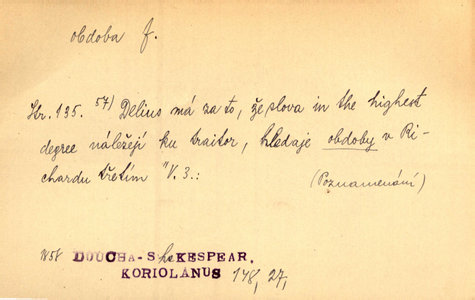 obdoba f.
Str. 135. 57) Delius má za to, že slova in the highest
degree náležejí ku traitor, hledaje obdoby v Ri-
chardu třetím "V. 3.:
(Poznamenání)
1858 DOUCHA-ShaKESPEAR,
KORIOLANUS 178, 27,